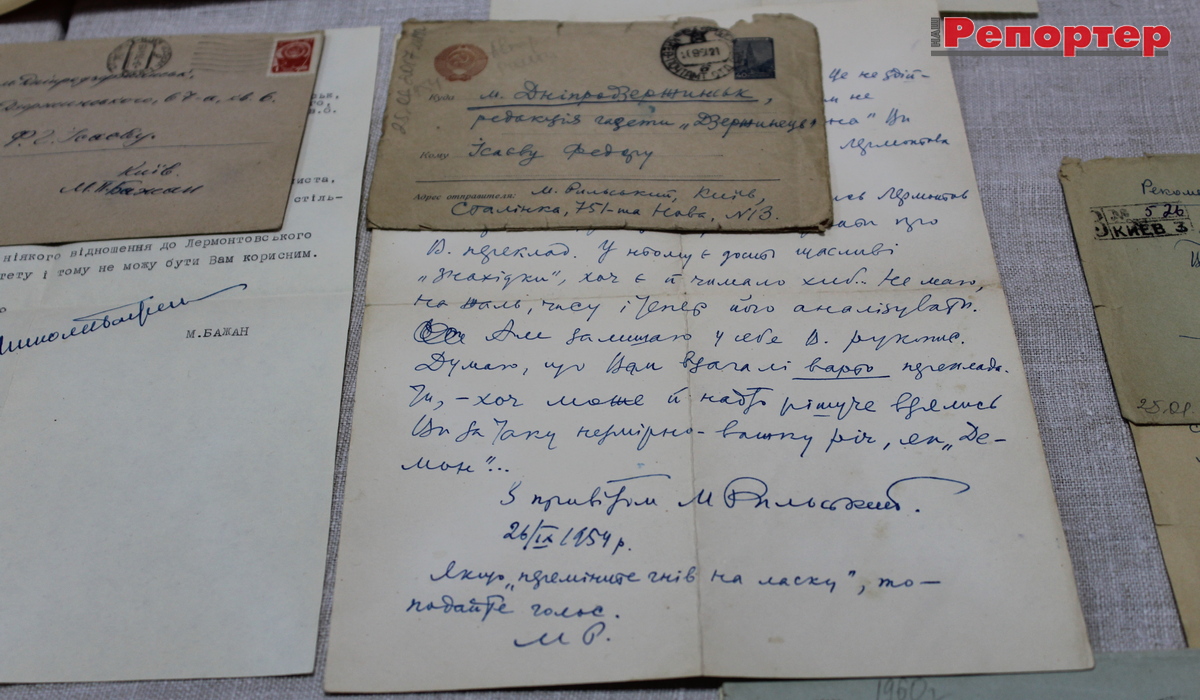 НАШ Репортер
м. Дніпродзержинськ,
Дзержинського, 67-а, кв. 6.
Ф. Є. Ісаєву.
Київ.
М. Бажан
листа.
стіль-
ніякого відношення до Лермонтовського
тету і тому не можу бути Вам корисним.
М.БАЖАН
Куда м. Дніпродзержинськ,
редакція газети „Дзержинець"
Кому Ісаєву Федору
Адрес отправителя: М. Рильський, Київ,
Сталінка, 751-та Нова, №13.
Це не
не
Ви
Лермонтова
Лермонтов
про
В. переклад. У ньому є досить щасливі
„знахідки", хоч є й чимало хиб. Не маю,
на жаль, часу і тепер його аналізувати.
Але залишаю у себе В. рукопис.
Думаю, що Вам взагалі варто переклада-
ти, – хоч може й надто рішуче взялись
Ви за таку незмірно-важку річ, як „Де-
мон"...
З привітом М Рильський.
26/IX 1954 р.
Якщо „переміните гнів на ласку", то –
подайте голос.
М Р.
Рекоме
526
КИЕВ 3
25.01
1960 г